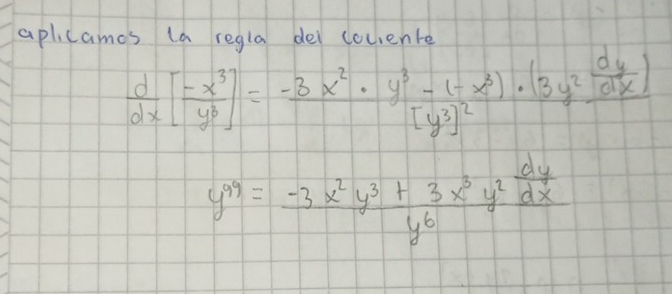 aplicamos la regla del cociente
d/dx [-x³/y³] = (-3x² · y³ - (-x³) · (3y² dy/dx))/[y³]²
y'' = (-3x²y³ + 3x³y² dy/dx)/y⁶